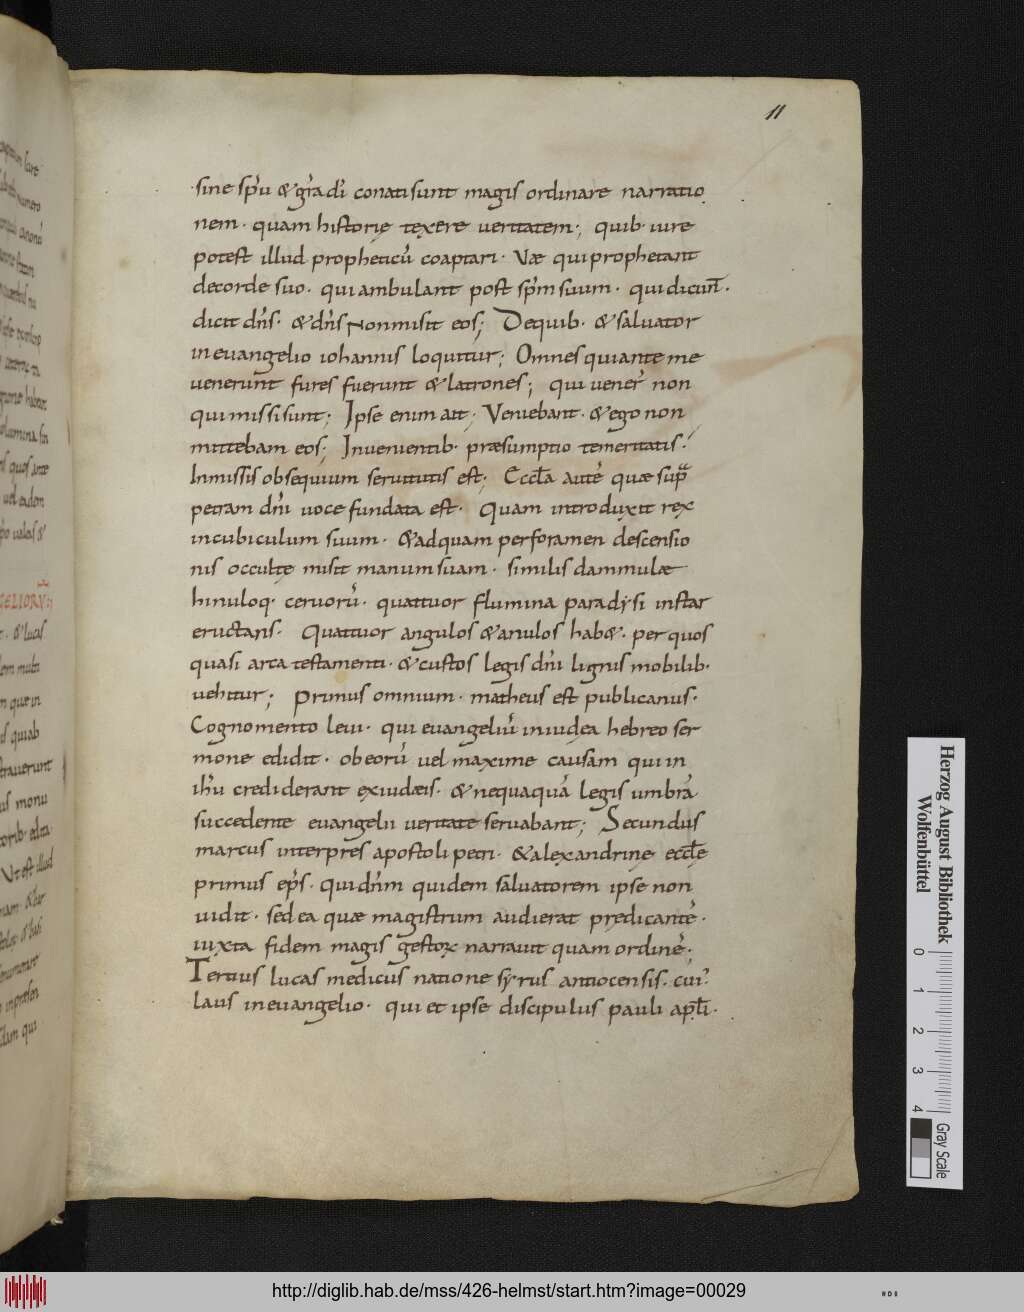 11
sine sp̄u &gr̄a dī conatisunt magis ordinare narratio
nem· quam historię texere ueritatem·, quib· iure
potest illud propheticū coaptari· Væ quiprophetant
decorde suo· quiambulant post sp̄m suum· quidicun̄t·
dicit dn̄s· &dn̄s Nonmisit eos; Dequib· &saluator
ineuangelio iohannis loquitur; Omnes quiante me
uenerunt fures fuerunt &latrones; qui uener̄ non
quimissisunt; Ipse enim ait; Veniebant· &ego non
mittebam eos; Inuenientib· præsumptio temeritatis·
Inmissis obsequium seruitutis est; Eccl̄a autē quæ sup̄
petram dn̄i uoce fundata est· Quam introduxit rex
incubiculum suum· &adquam perforamen descensio
nis occultę misit manumsuam· similis dammulæ
hinuloq· ceruorū· quattuor flumina paradysi instar
eructans· Quattuor angulos &anulos hab&· per quos
quasi arca testamenti· &custos legis dn̄i lignis mobilib·
uehitur; primus omnium· matheus est publicanus·
Cognomento leui· qui euangeliū iniudea hebreo ser
mone edidit· obeorū uel maxime causam qui in
ih̄u crediderant exiudæis· &nequaquā legis umbrā
succedente euangelii ueritate seruabant; Secundus
marcus interpres apostoli petri· &alexandrinę eccl̄ę
primus ep̄s· quidn̄m quidem saluatorem ipse non
uidit· sed ea quæ magistrum audierat prędicantē·
iuxta fidem magis gestoꝝ narrauit quam ordinē·;
Tertius lucas medicus natione syrus antiocensis· cui'
laus ineuangelio· qui et ipse discipulus pauli apl̄i·
Herzog August Bibliothek
Wolfenbüttel
0 1 2 3 4
Gray Scale
http://diglib.hab.de/mss/426-helmst/start.htm?image=00029